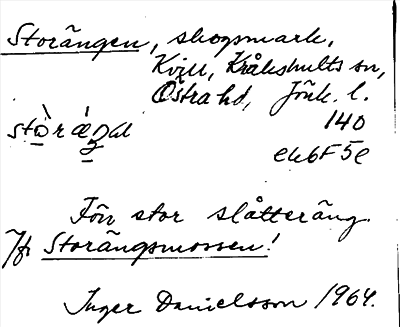 Storängen, skogsmark,
Kvill, Kråkshults sn,
Östra hd, Jönk. l.
140
stòr áŋal
eh6F5e
Förr stor slåtteräng.
Jfr Storängsmossen!
Inger Danielsson 1964.